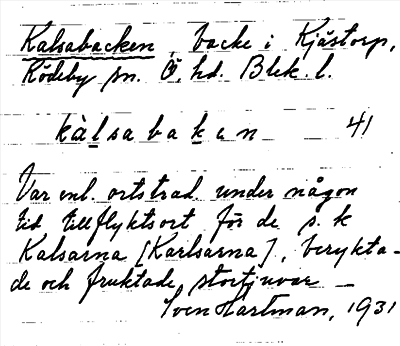 Kalsabacken, backe i Kjästorp,
Rödeby sn. Ö. hd. Blek. l.
kàlsabakan 41
Var enl. ortstrad. under någon
tid tillflyktsort för de s.k
Kalsarna [Karlsarna], berykta-
de och fruktade stortjuvar –
Sven Hartman, 1931